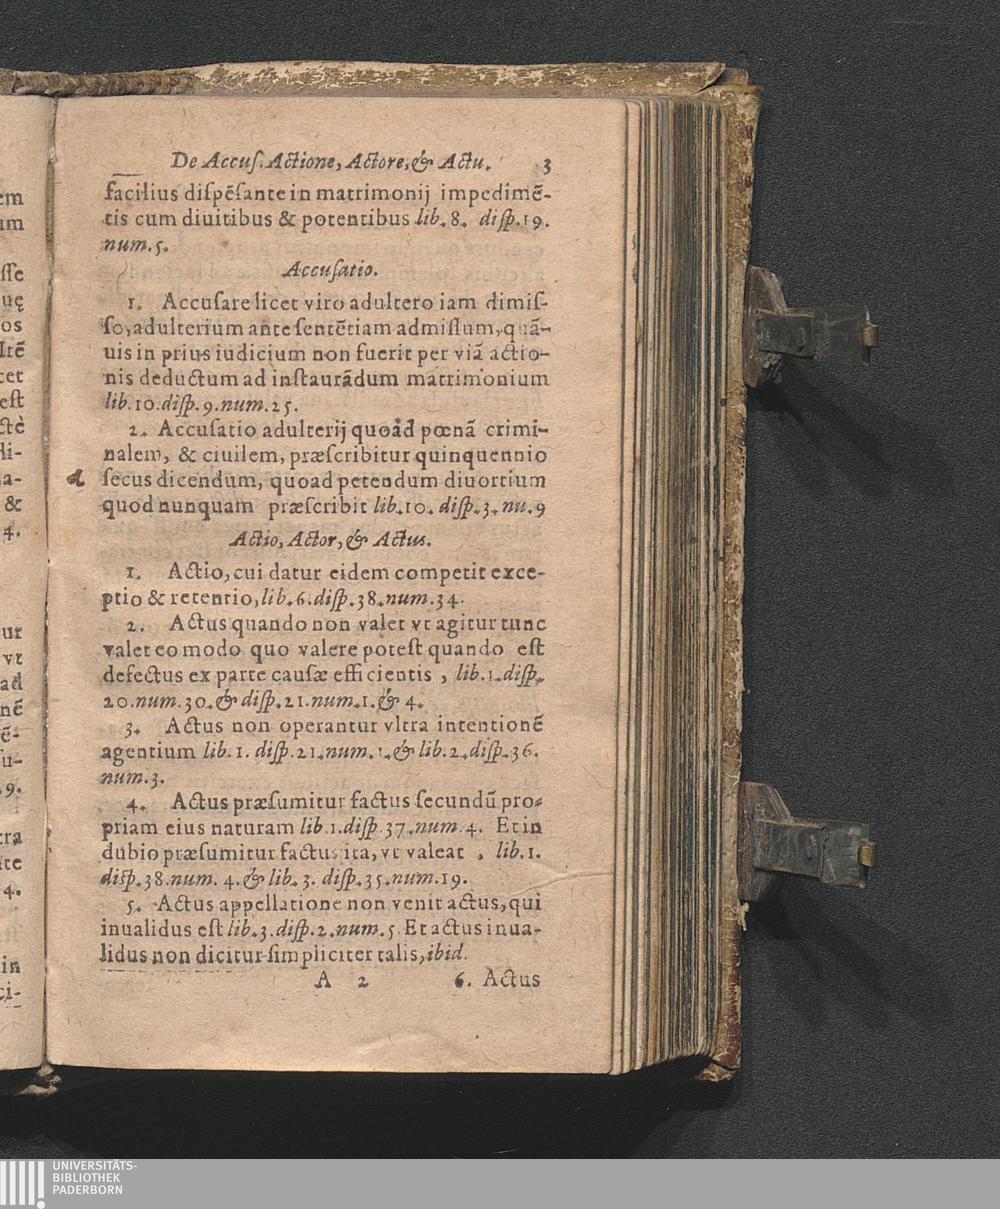 De Accuſ. Actione, Actore, & Actu. 3
facilius diſpēſante in matrimonij impedimē-
tis cum diuitibus & potentibus lib. 8. diſp. 19.
num. 5.
Accuſatio.
1. Accuſare licet viro adultero iam dimiſ-
ſo, adulterium ante ſentētiam admiſſum, quā-
uis in prius iudicium non fuerit per viā actio-
nis deductum ad inſtaurādum matrimonium
lib. 10. diſp. 9. num. 25.
2. Accuſatio adulterij quoad pœnā crimi-
nalem, & ciuilem, præſcribitur quinquennio
ſecus dicendum, quoad petendum diuortium
quod nunquam præſcribit lib. 10. diſp. 3. nu. 9
Actio, Actor, & Actus.
1. Actio, cui datur eidem competit exce-
ptio & retentio, lib. 6. diſp. 38. num. 34.
2. Actus quando non valet vt agitur tunc
valet eo modo quo valere poteſt quando eſt
defectus ex parte cauſæ efficientis, lib. 1. diſp.
20. num. 30. & diſp. 21. num. 1. & 4.
3. Actus non operantur vltra intentionē
agentium lib. 1. diſp. 21. num. 1. & lib. 2. diſp. 36.
num. 3.
4. Actus præſumitur factus ſecundū pro-
priam eius naturam lib. 1. diſp. 37. num. 4. Et in
dubio præſumitur factus ita, vt valeat, lib. 1.
diſp. 38. num. 4. & lib. 3. diſp. 35. num. 19.
5. Actus appellatione non venit actus, qui
inualidus eſt lib. 3. diſp. 2. num. 5. Et actus inua-
lidus non dicitur ſimpliciter talis, ibid.
A 2 6. Actus
UNIVERSITÄTS-
BIBLIOTHEK
PADERBORN